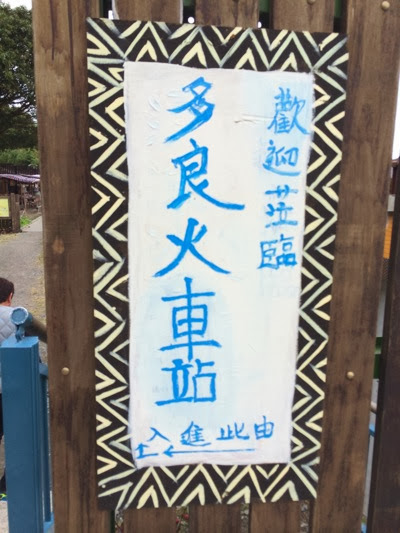 歡迎蒞臨
多良火車站
由此進入